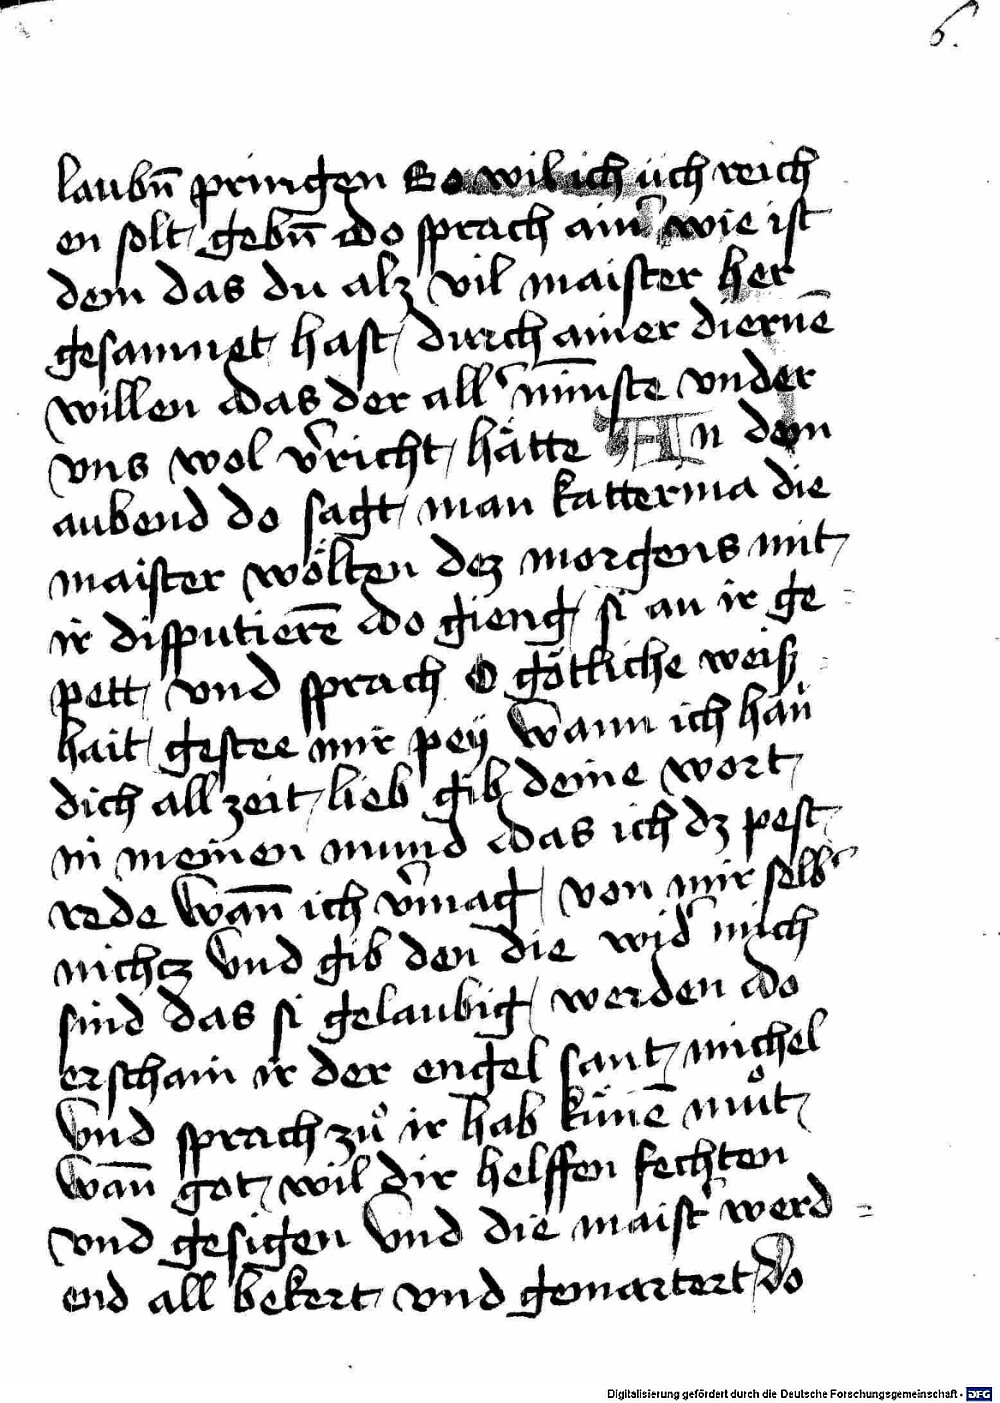 6.
laubn̄ pringen So wil ich üch reich
en solt gebn̄ Do sprach ainʼ wie ist
dem das du alz vil maister her
gesamnet hast durch ainer diernē
willen das der allʼ minste vnder
vns wol vʼricht hätte An dem
aubend do sagt man katterina die
maister wölten dez morgens mit
ir disputierē Do gieng si an ir ge
pett vnd sprach O götliche weisz
hait gestee mir pey Wann ich han
dich all zeit lieb gib deine wort
in meinen mund das ich dz pest
rede Wan̄ ich vʼmag von mir selbʼ
nichcz Vnd gib den die widʼ mich
sind das si gelaubig werden Do
erschain ir der engel sant michel
Vnd sprach zů ir hab künē můt
Wan̄ got wil dir helffen fechten
vnd gesigen Vnd die maistʼ werd =
end all bekert vnd gemartert Do
Digitalisierung gefördert durch die Deutsche Forschungsgemeinschaft - DFG